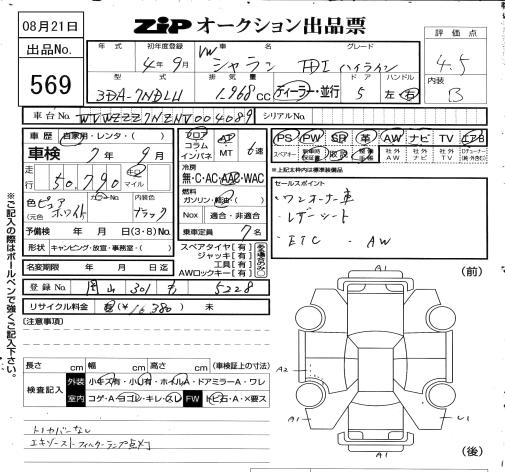 08月21日
ZIP オークション出品票
出品No.
569
年式 初年度登録 車名 グレード
4年9月 VW シャラン TDI ハイライン
型式 排気量 ドア ハンドル
3DA-7NDLU 1,968cc ディーラー・並行 5 左・右
評価点
4.5
内装
B
車台No. WVWZZZ7NZNV004089 シリアルNo.
車歴 自家用・レンタ・( )
車検 7年9月
走行 50,790 キロ マイル
色 ピュアホワイト (元色
カラーNo.
内装色 ブラック
予備検 年 月 日(3・8)No.
形状 キャンピング・放宣・事務室・( )
名変期限 年 月 日迄
登録No. 岡山 301 5228
リサイクル料金 ¥16,380) 未
フロア コラム インパネ
AT MT 6速
冷房
無・C・AC・AAC・WAC
燃料
ガソリン・軽油・( )
Nox 適合・非適合
乗車定員 7名
スペアタイヤ[有]
ジャッキ[有]
工具[有]
AWロックキー[有]
ある場合のみ○
PS PW SR 革 AW ナビ TV エアB
スペアキー 保証書 取説 社外AW 社外ナビ 社外TV
※上記太枠内は標準装備品
セールスポイント
・ワンオーナー車
・レザーシート
・ETC ・AW
(注意事項)
長さ cm 幅 cm 高さ cm (車検証上の寸法)
検査記入
外装 小キズ有・小凹有・ホイルA・ドアミラーA・ワレ
室内 コゲ・A・ヨゴレ・キレ・スレ FW トビ石・A・×要ス
トノカバーなし
エキゾーストフィルターランプ点灯
(前)
A1
A2
A1
U1
A1
(後)
※ご記入の際はボールペンで強くご記入下さい。